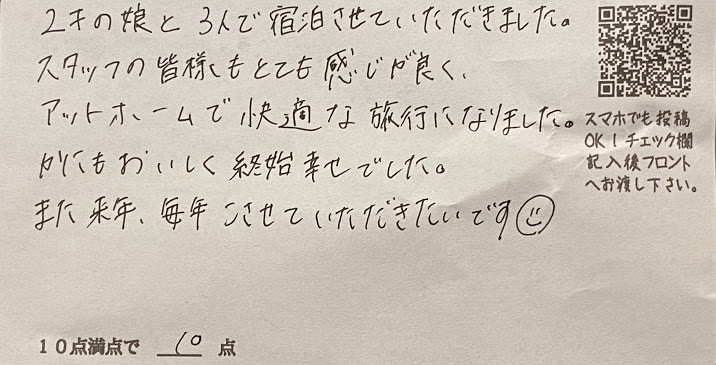 2才の娘と3人で宿泊させていただきました。
スタッフの皆様もとても感じが良く、
アットホームで快適な旅行になりました。
かにもおいしく終始幸せでした。
また来年、毎年こさせていただきたいです
スマホでも投稿
OK!チェック欄
記入後フロント
へお渡し下さい。
10点満点で 10 点